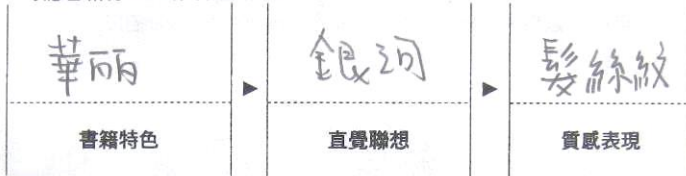 華丽 ▶ 銀河 ▶ 髮絲紋
書籍特色 直覺聯想 質感表現